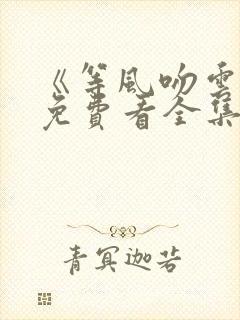 《等风吻雪
免費看全集
青冥迦若